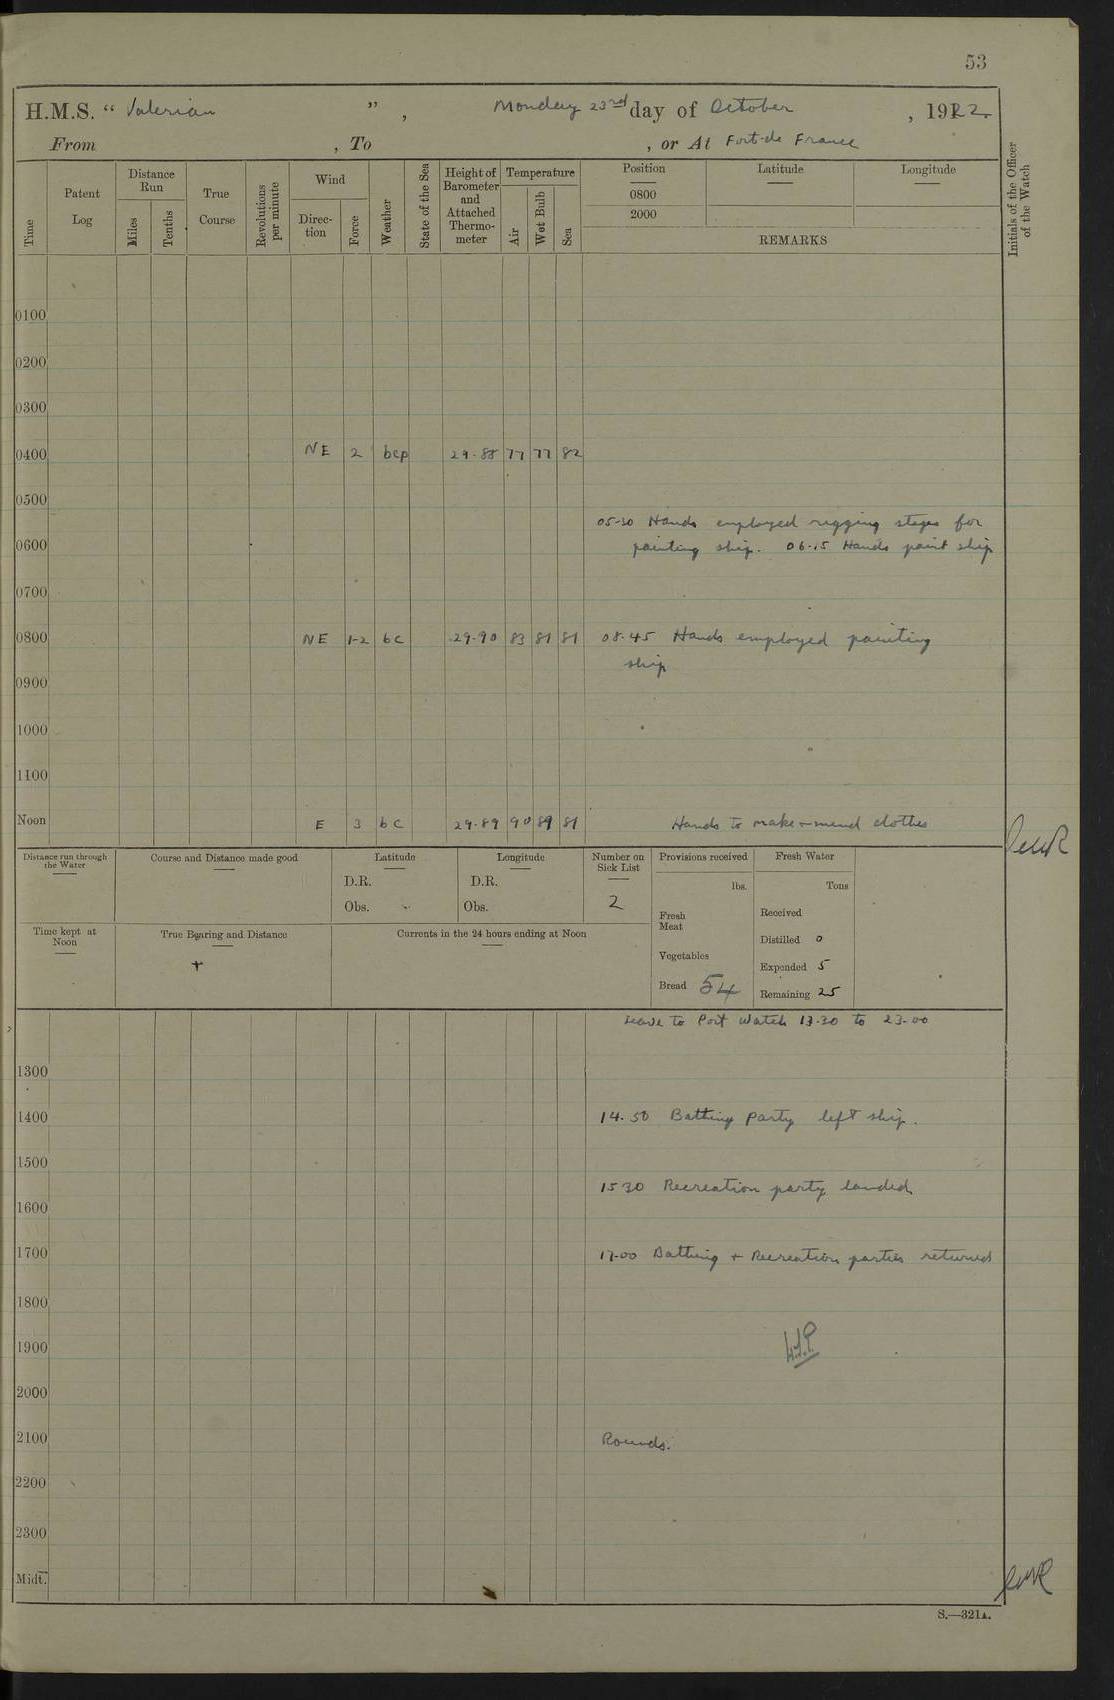 53
H.M.S. “ Valerian ” , Monday 23rd day of October , 1922.
From , To , or At Fort-de France
Time
Patent Log
Distance Run
Miles
Tenths
True Course
Revolutions per minute
Wind
Direc-tion
Force
Weather
State of the Sea
Height of Barometer and Attached Thermo-meter
Temperature
Air
Wet Bulb
Sea
Position
0800
2000
Latitude
Longitude
REMARKS
Initials of the Officer of the Watch
0100
0200
0300
0400 NE 2 bcp 29.88 77 77 82
0500
05-30 Hands employed rigging stages for
0600 painting ship. 06.15 Hands paint ship
0700
0800 NE 1-2 bc 29.90 83 81 81 08.45 Hands employed painting
ship
0900
1000
1100
Noon E 3 bc 29.89 90 89 81 Hands to make + mend clothes
Distance run through the Water
Course and Distance made good
Latitude
D.R.
Obs.
Longitude
D.R.
Obs.
Number on Sick List
2
Provisions received
lbs.
Fresh Meat
Vegetables
Bread 54
Fresh Water
Tons
Received
Distilled 0
Expended 5
Remaining 25
Time kept at Noon
True Bearing and Distance
+
Currents in the 24 hours ending at Noon
Leave to Port Watch 13.30 to 23.00
1300
1400 14.50 Bathing party left ship.
1500
1530 Recreation party landed
1600
1700 17.00 Bathing + Recreation parties returned
1800
1900
2000
2100 Rounds.
2200
2300
Midt.
S.—321A.